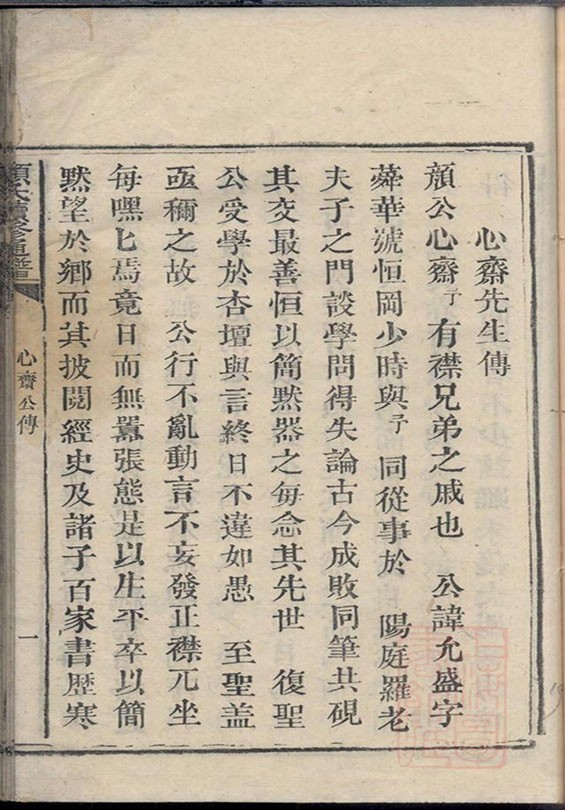 心齋先生傳
顏公心齋予有襟兄弟之戚也 公諱允盛字
蕣華號恒岡少時與予同從事於 陽庭羅老
夫子之門談學問得失論古今成敗同筆共硯
其交最善恒以簡默器之每念其先世 復聖
公受學於杏壇與言終日不違如愚 至聖盖
亟稱之故 公行不亂動言不妄發正襟兀坐
每嘿匕焉竟日而無囂張態是以生平卒以簡
默望於鄉而其披閱經史及諸子百家書歷寒
顏氏續修通譜
心齋公傳
一